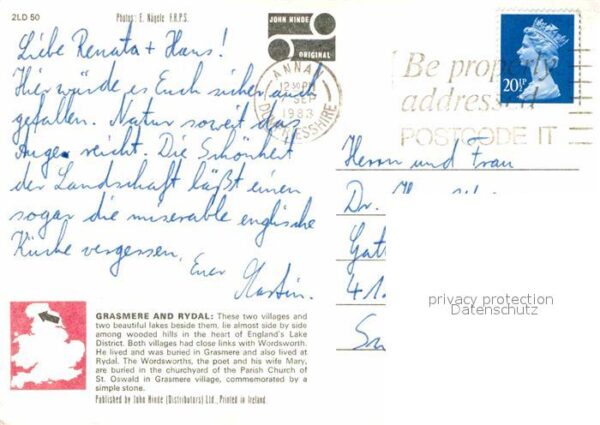 2LD 50
Photos: E. Nägele F.R.P.S.
JOHN HINDE
ORIGINAL
Liebe Renata + Hans!
Hier würde es Euch sicher auch
gefallen. Natur soweit das
Auge reicht. Die Schönheit
der Landschaft läßt einen
sogar die miserable englische
Küche vergessen.
Euer Martin.
ANNAN
12 30 PM
7 SEP
1983
DUMFRIESSHIRE
Be properly
addressed
POSTCODE IT
20½P
Herrn und Frau
Dr.
41
privacy protection
Datenschutz
GRASMERE AND RYDAL: These two villages and
two beautiful lakes beside them, lie almost side by side
among wooded hills in the heart of England's Lake
District. Both villages had close links with Wordsworth.
He lived and was buried in Grasmere and also lived at
Rydal. The Wordsworths, the poet and his wife Mary,
are buried in the churchyard of the Parish Church of
St. Oswald in Grasmere village, commemorated by a
simple stone.
Published by John Hinde (Distributors) Ltd., Printed in Ireland.